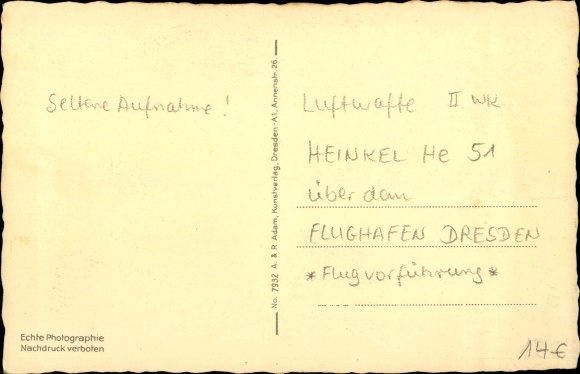 Seltene Aufnahme!
Luftwaffe II WK
HEINKEL He 51
über dem
FLUGHAFEN DRESDEN
*Flugvorführung*
No. 7932 A. & R. Adam, Kunstverlag, Dresden-A1, Annenstr. 26
Echte Photographie
Nachdruck verboten
14€